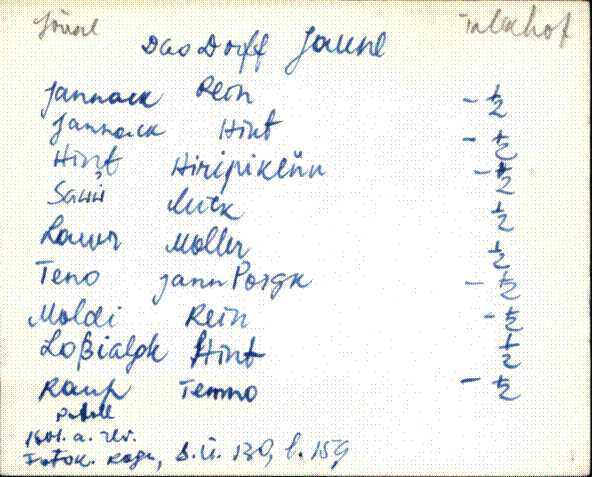 Jõuul Talkhof
Das Dorff Jaunl
Jannack Rein - ½
Jannack Hint - ½
Hint Hiripikenn - ½
Sawi Muck ½
Lawr Moller ½
Teno Jann Porgk - ½
Moldi Rein - ½
Loßialgk Hint ½
Raup Temmo - ½
1601. a. rev.
Fotok. kogu, s. ü. 130, l. 159